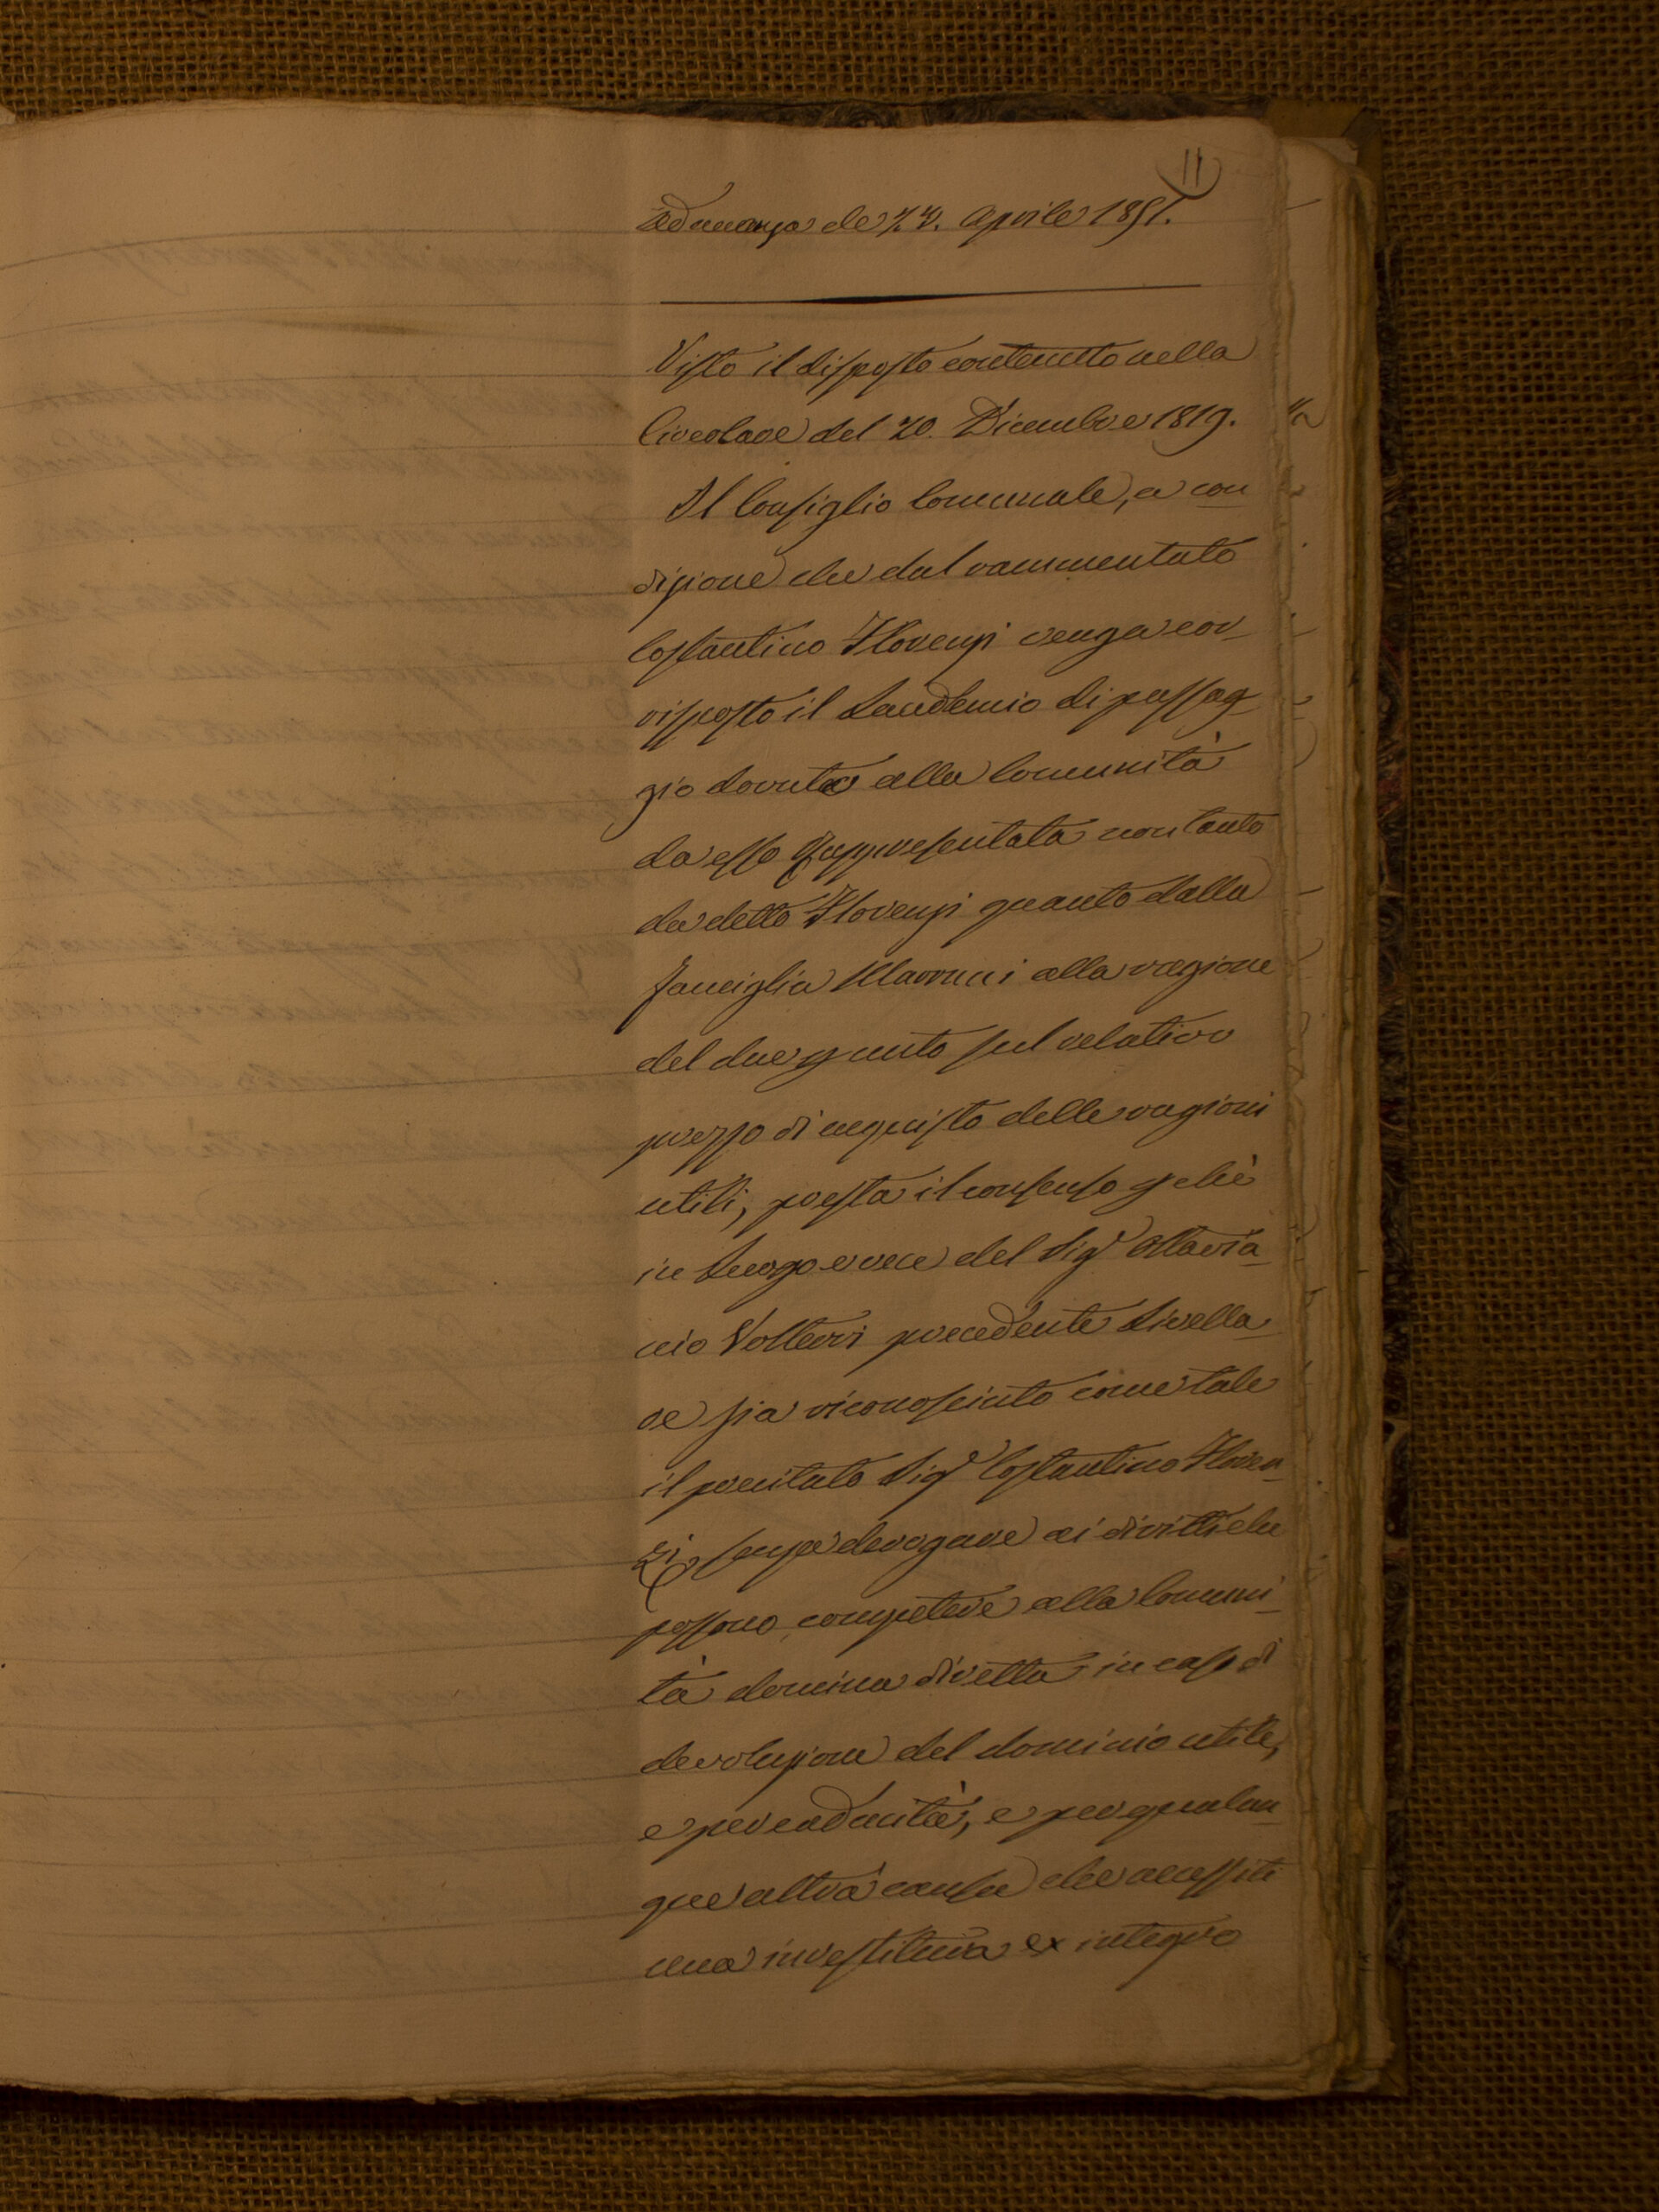 11
Adunanza de 22. Aprile 1851.
Visto il disposto contenuto nella
Circolare del 20. Dicembre 1819.
Il Consiglio Comunale, a con
dizione che dal rammentato
Costantino Florenzi venga cor
risposto il Laudemio di passag
gio dovuto alla Comunità
da esso Rappresentata non tanto
da detto Florenzi quanto dalla
famiglia Marrucci alla ragione
del due p cento sul relativo
prezzo di acquisto delle ragioni
utili, presta il consenso p chè
in Luogo e vece del Sigr Ottavia
nio Volterri precedente Livella
re sia riconosciuto come tale
il precitato Sigr Costantino Floren
zi, senza derogare ai diritti che
possono competere alla Comuni
tà domina diretta in caso di
devoluzione del dominio utile,
e per caducità, e per qualun
que altra causa che necessiti
una investitura ex integro